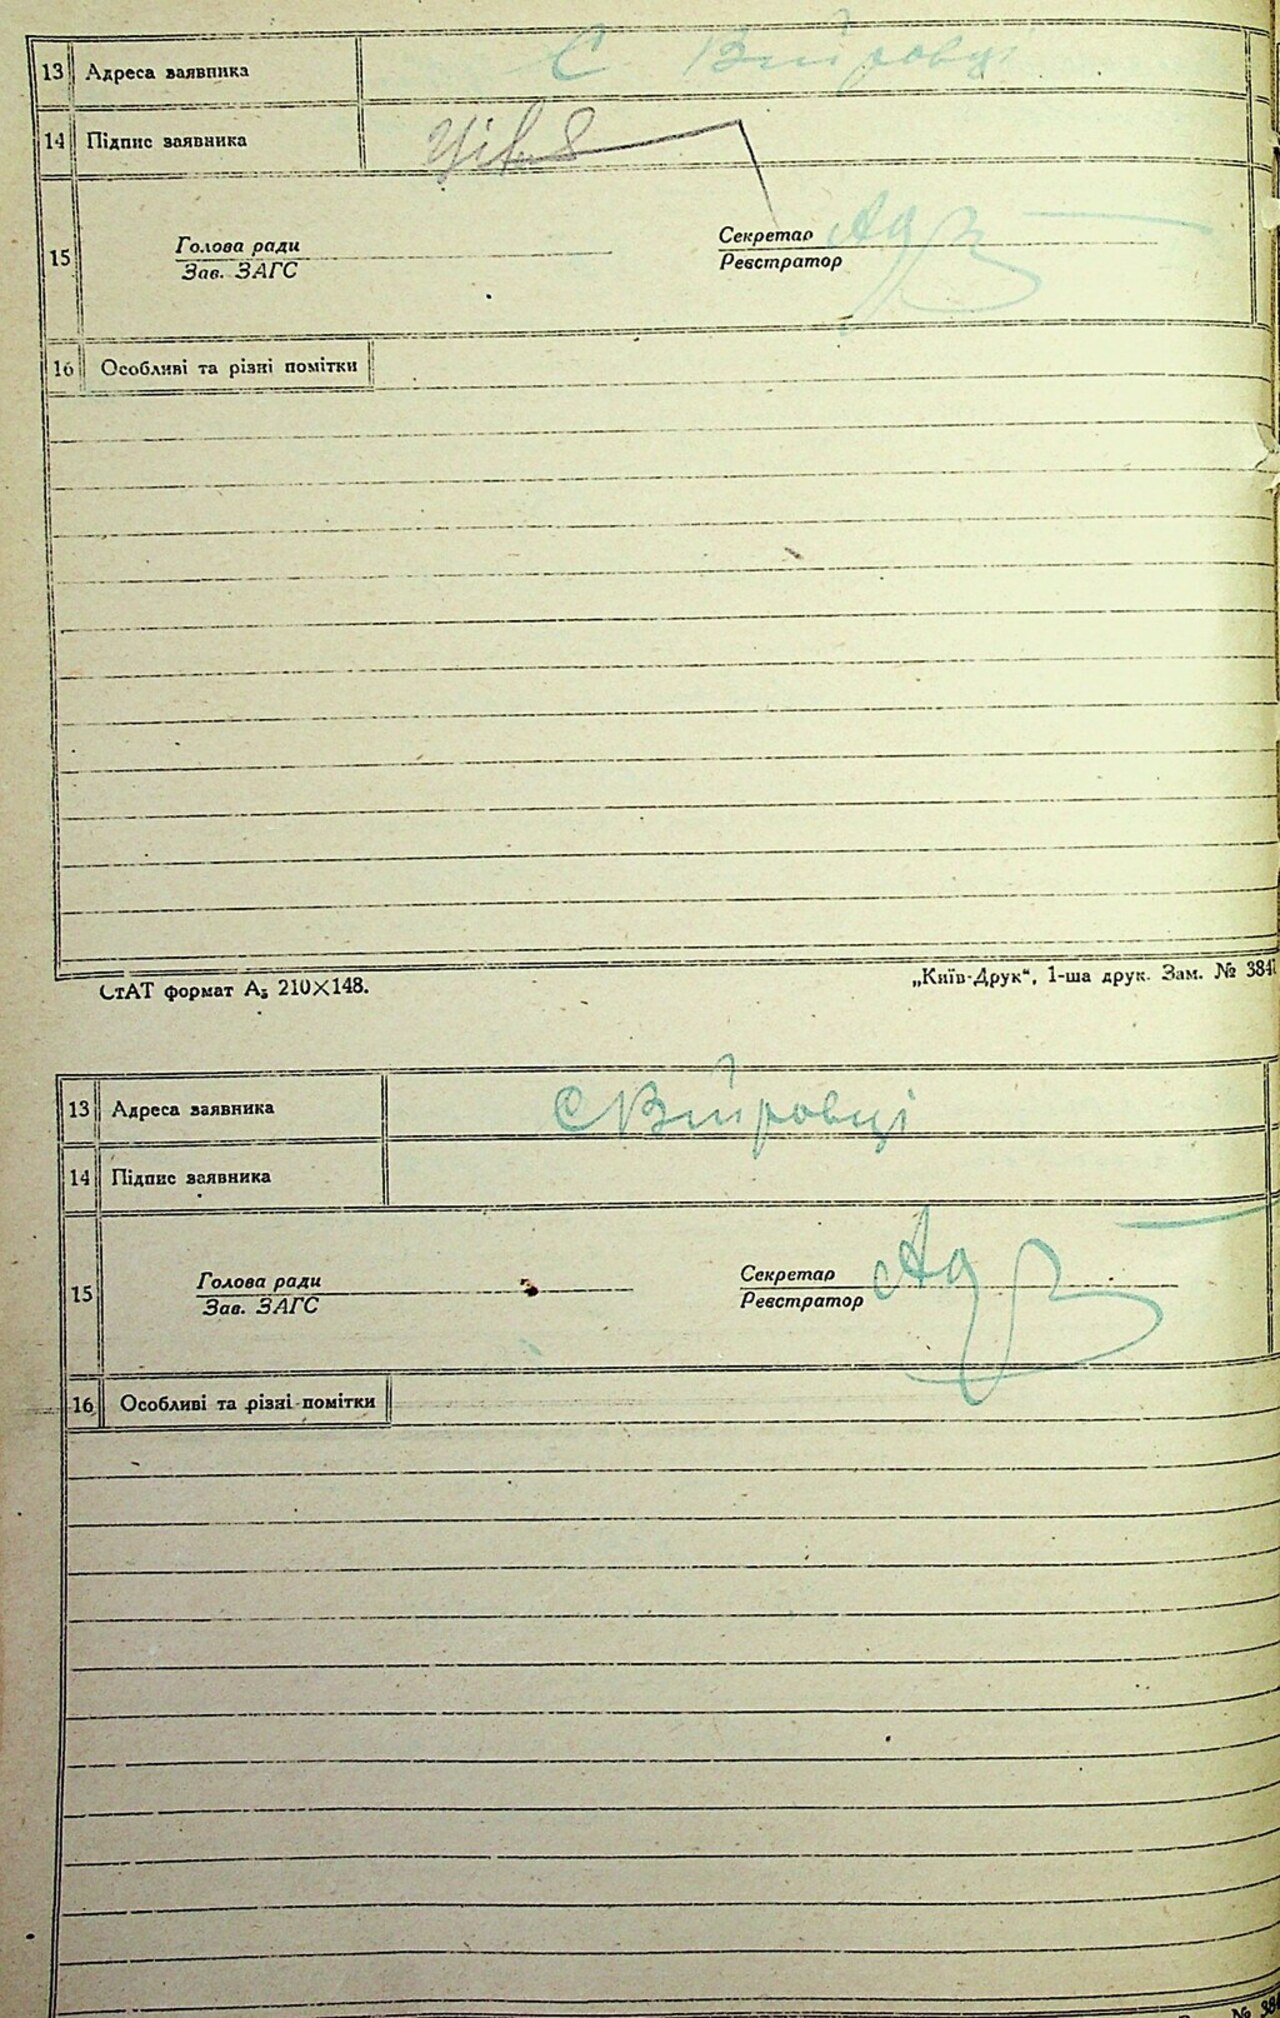 13 Адреса заявника С Війтовці
14 Підпис заявника
15 Голова ради Секретар
Зав. ЗАГС Реєстратор
16 Особливі та різні помітки
СтАТ формат А5 210×148. „Київ-Друк“, 1-ша друк. Зам. № 384
13 Адреса заявника С Війтовці
14 Підпис заявника
15 Голова ради Секретар
Зав. ЗАГС Реєстратор
16 Особливі та різні помітки
№ 384